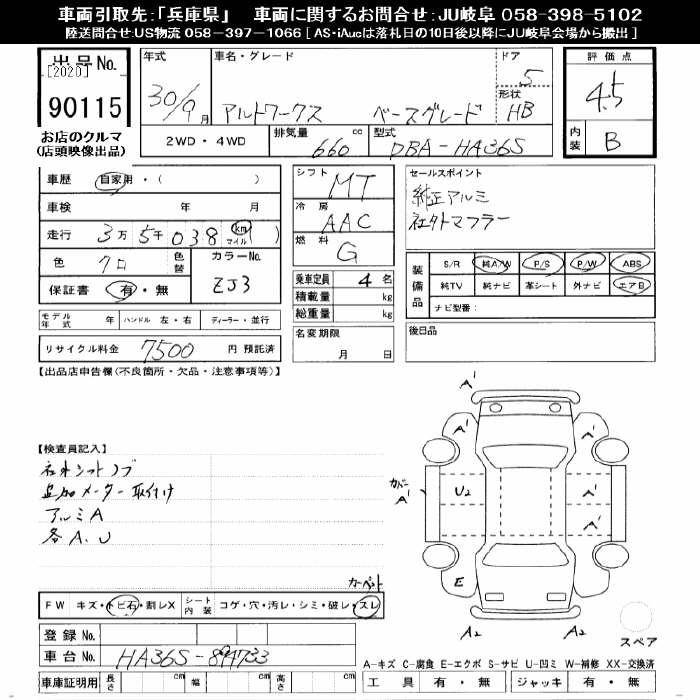 車両引取先:「兵庫県」 車両に関するお問合せ:JU岐阜 058-398-5102
陸送問合せ:US物流 058-397-1066 [ AS・iAucは落札日の10日後以降にJU岐阜会場から搬出 ]
出品No.
[2020]
90115
お店のクルマ
(店頭映像出品)
年式 車名・グレード ドア
30/9月 アルトワークス ベースグレード 5
形状
HB
2WD・4WD 排気量 660 cc 型式 DBA-HA36S
評価点
4.5
内装 B
車歴 自家用・( )
車検 年 月
走行 3万5千038 km マイル )
色 クロ 色替 カラーNo.
ZJ3
保証書 有・無
モデル年式 年 ハンドル 左・右 ディーラー・並行
リサイクル料金 7500 円 預託済
シフト MT
冷房 AAC
燃料 G
乗車定員 4 名
積載量 kg
総重量 kg
名変期限
月 日
セールスポイント
純正アルミ
社外マフラー
装備品 S/R 純A/W P/S P/W ABS
純TV 純ナビ 革シート 外ナビ エアB
ナビ型番:
後日品
【出品店申告欄(不良箇所・欠品・注意事項等)】
【検査員記入】
社外シフトノブ
追加メーター取付け
アルミA
各A.U
カーペット
FW キズ・トビ石・割レX シート内装 コゲ・穴・汚レ・シミ・破レ・スレ
登録No.
車台No. HA36S-894733
車庫証明用 長さ cm 幅 cm 高さ cm
A'
A'
A'
カバー
A'
U2
A'
A'
E
A2
A2
スペア
A-キズ C-腐食 E-エクボ S-サビ U-凹ミ W-補修 XX-交換済
工具 有・無 ジャッキ 有・無